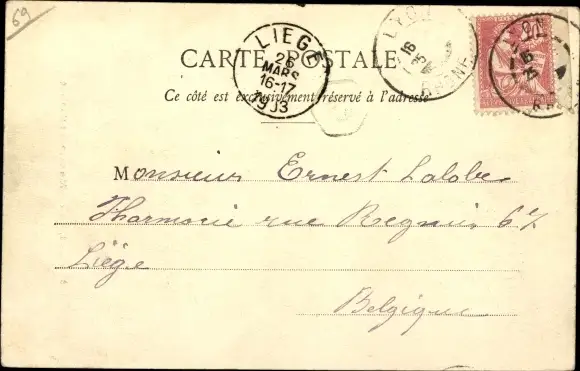 69
LIEGE
26
MARS
16-17
1903
LYON
16
25
RHONE
CARTE POSTALE
Ce côté est exclusivement réservé à l'adresse
Monsieur Ernest Lalobe
Pharmacie rue Regnier 67
Liège
Belgique